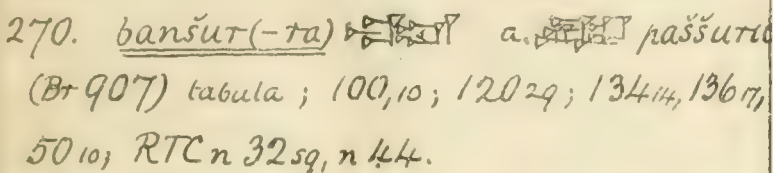 270. banšur(-ra) a. paššuru
(Br 907) tabula ; 100,10 ; 120 29 ; 134 14, 136 17,
50 10; RTC n 32 sq, n 44.